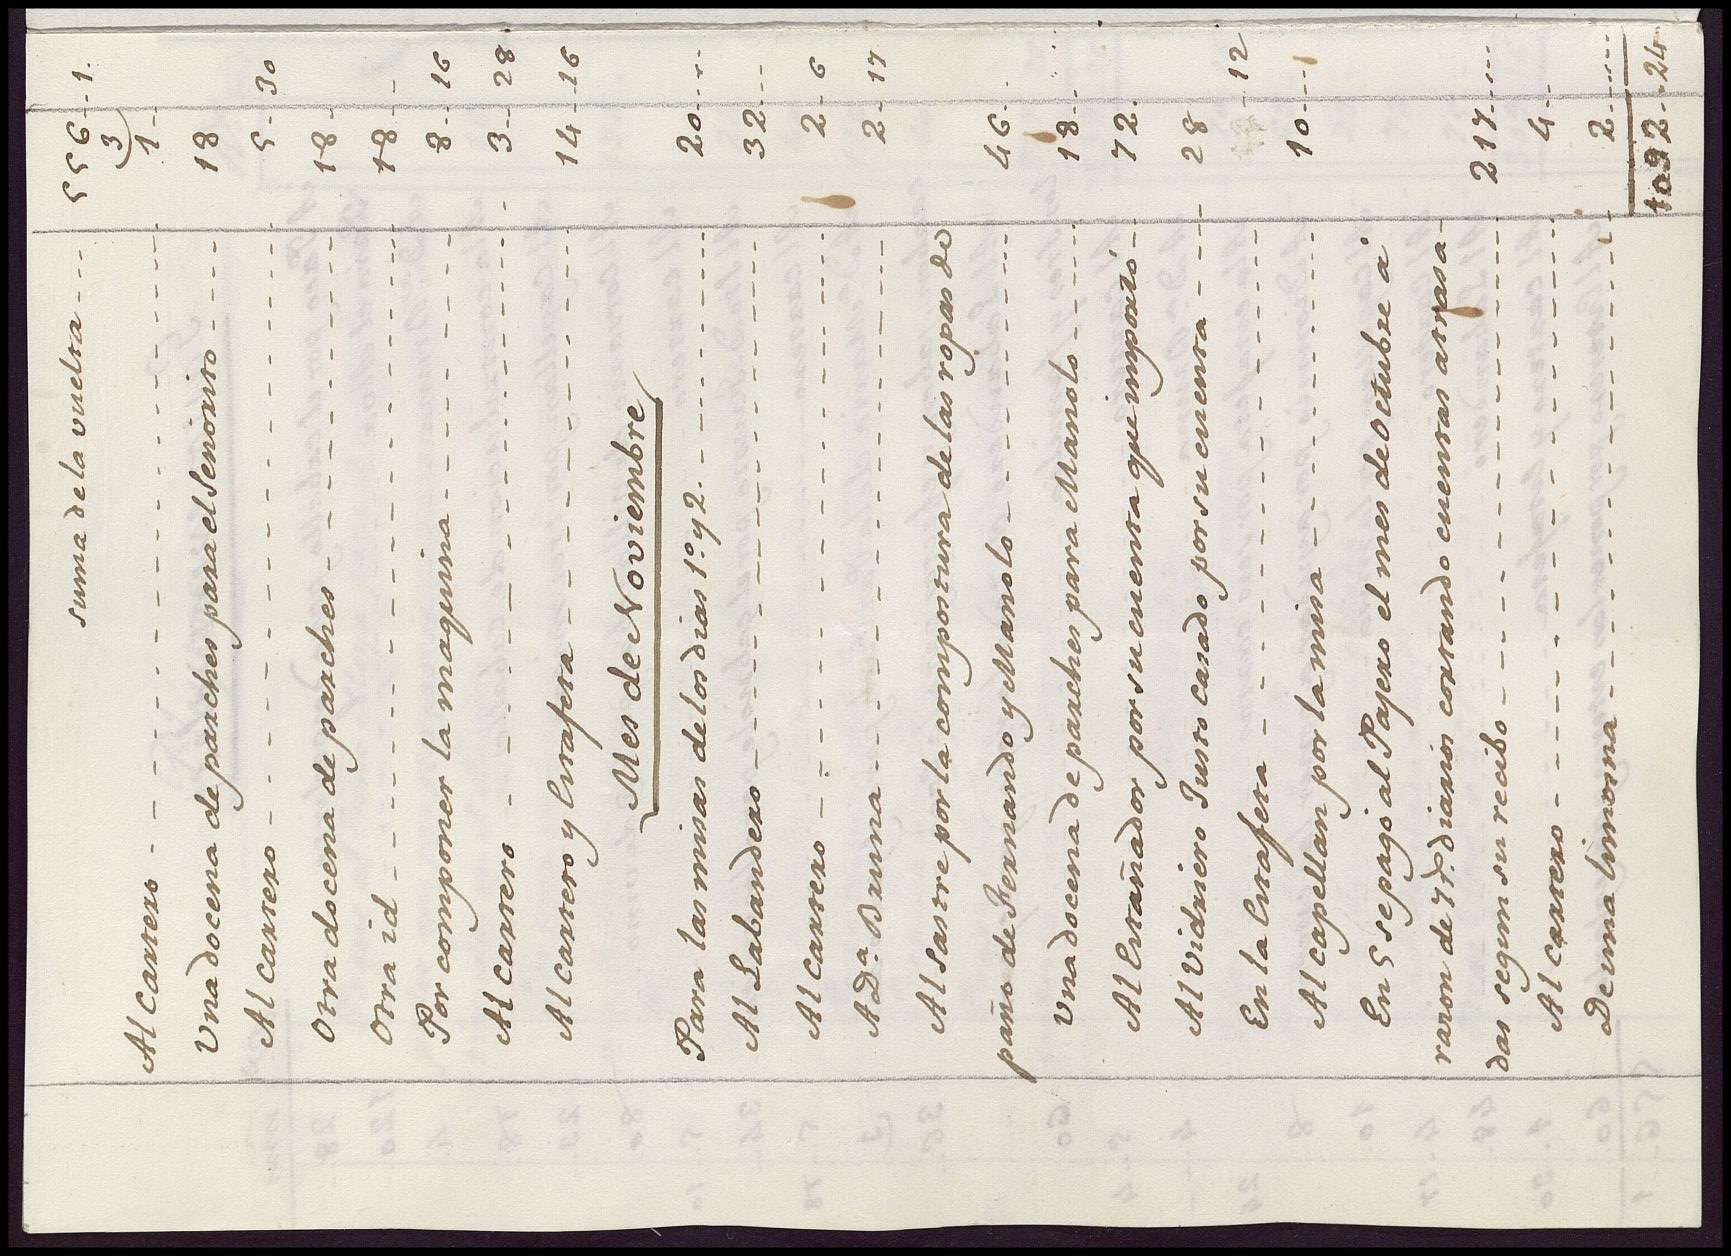 suma de la vuelta --- 556--1.
3)
Al carrero --- 1--
Una docena de parches para el Señorito --- 18
Al carrero --- 5--30
Otra docena de parches --- 18--
Otra id --- 18--
Por componer la maquina --- 8--16
Al carrero --- 3--28
Al carrero y Estafeta --- 14--16
Mes de Noviembre
Para las misas de los dias 1º. y 2. --- 20---
Al Labandero --- 32---
Al carrero --- 2--6
A Dª. Bruna --- 2--17
Al Sastre por la compostura de las ropas de
paño de Fernando y Manolo --- 46..
Una docena de parches para Manolo --- 18--
Al Estañador por su cuenta que importó --- 72.
Al Vidriero Justo casado por su cuenta --- 28
En la Estafeta --- 12
Al capellan por la misa --- 10---
En 5 se pagó al Pajero el mes de Octubre á
razon de 7 r.s diarios cortando cuentas atrasa-
das segun su recibo --- 217----
Al carrero --- 4--
De una limosna --- 2----
1092--24